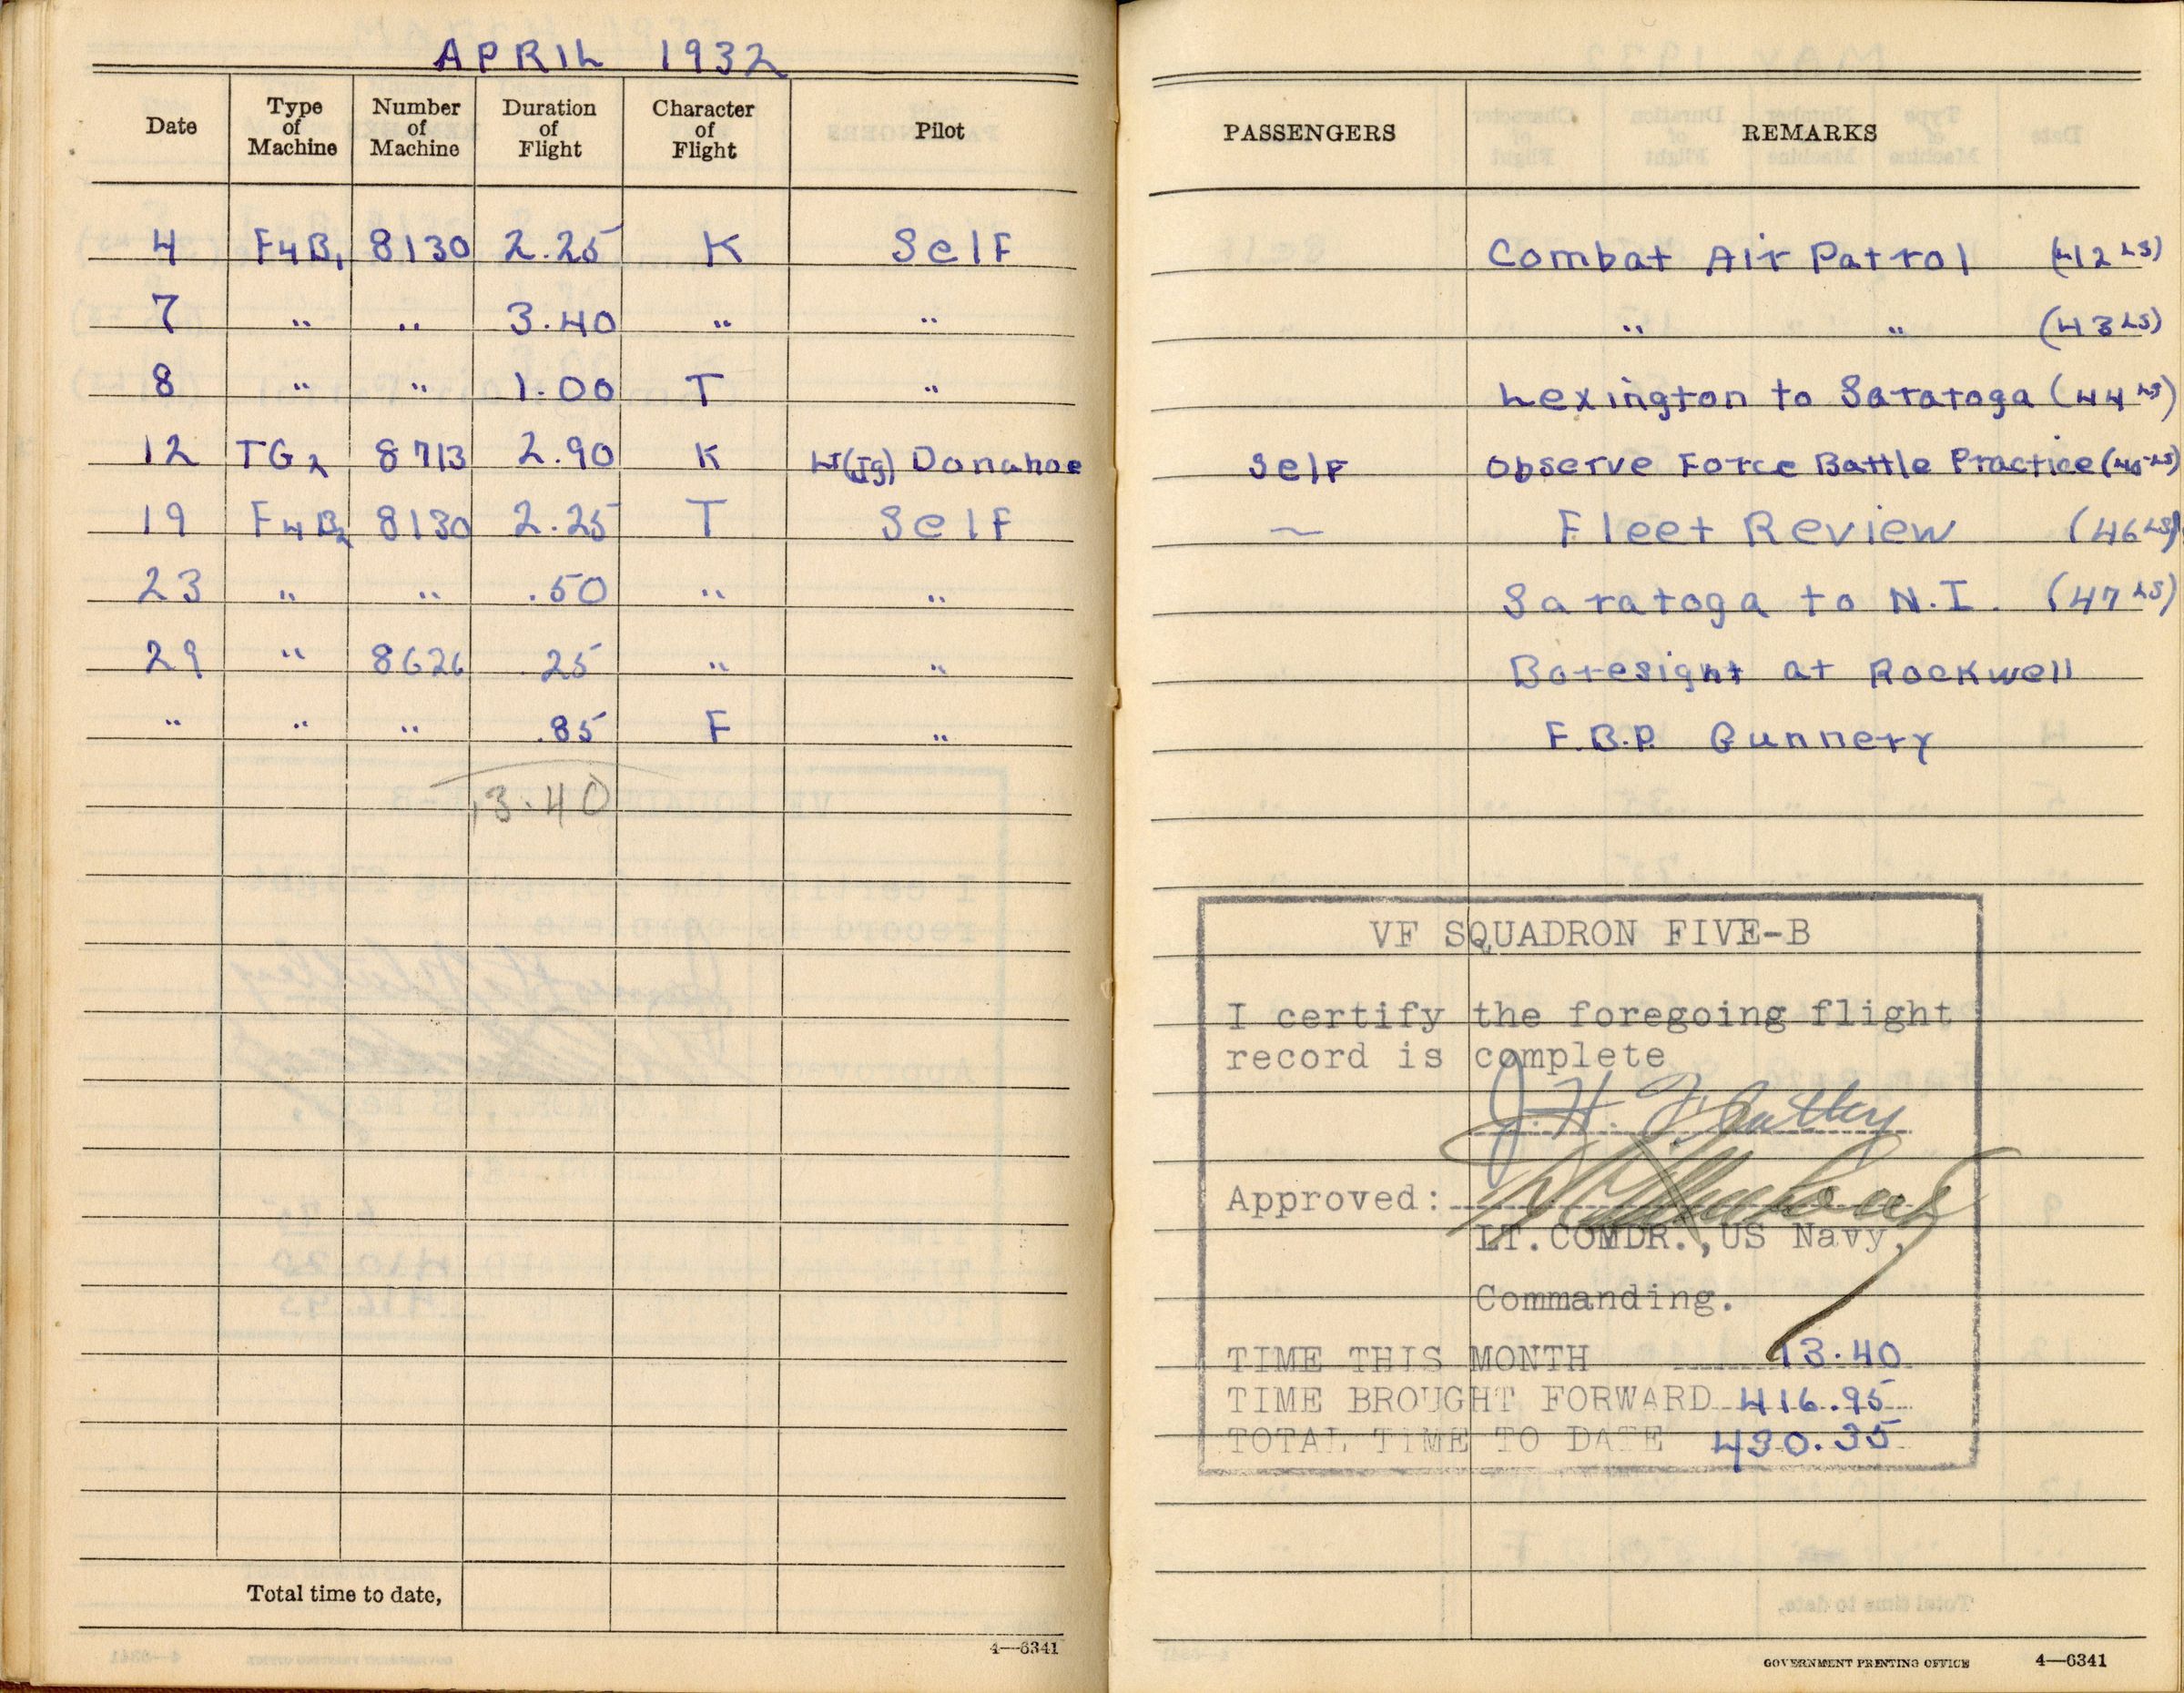 APRIL 1932
Date Type of Machine Number of Machine Duration of Flight Character of Flight Pilot PASSENGERS REMARKS
4 F4B1 8130 2.25 K Self Combat Air Patrol (42 LS)
7 " " 3.40 " " " " (43 LS)
8 " " 1.00 T " Lexington to Saratoga (44 LS)
12 TG2 8713 2.90 K LT(JG) Donahoe Self Observe Force Battle Practice (45 LS)
19 F4B2 8130 2.25 T Self ~ Fleet Review (46 LS)
23 " " .50 " " Saratoga to N.I. (47 LS)
29 " 8626 .25 " " Boresight at Rockwell
" " " .85 F " F.B.P. Gunnery
13.40
VF SQUADRON FIVE-B
I certify the foregoing flight
record is complete
J.H. Flatley
Approved:
LT.COMDR.,US Navy,
Commanding.
TIME THIS MONTH 13.40
TIME BROUGHT FORWARD 416.95
TOTAL TIME TO DATE 430.35
Total time to date,
4—6341
GOVERNMENT PRINTING OFFICE 4—6341